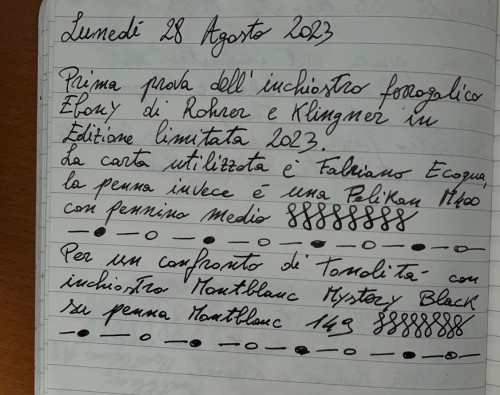 Lunedì 28 Agosto 2023
Prima prova dell'inchiostro ferrogalico
Ebony di Rohrer e Klingner in
Edizione limitata 2023.
La carta utilizzata è Fabriano Ecoqua,
la penna invece è una Pelikan M400
con pennino medio
Per un confronto di Tonalità con
inchiostro Montblanc Mystery Black
su penna Montblanc 149